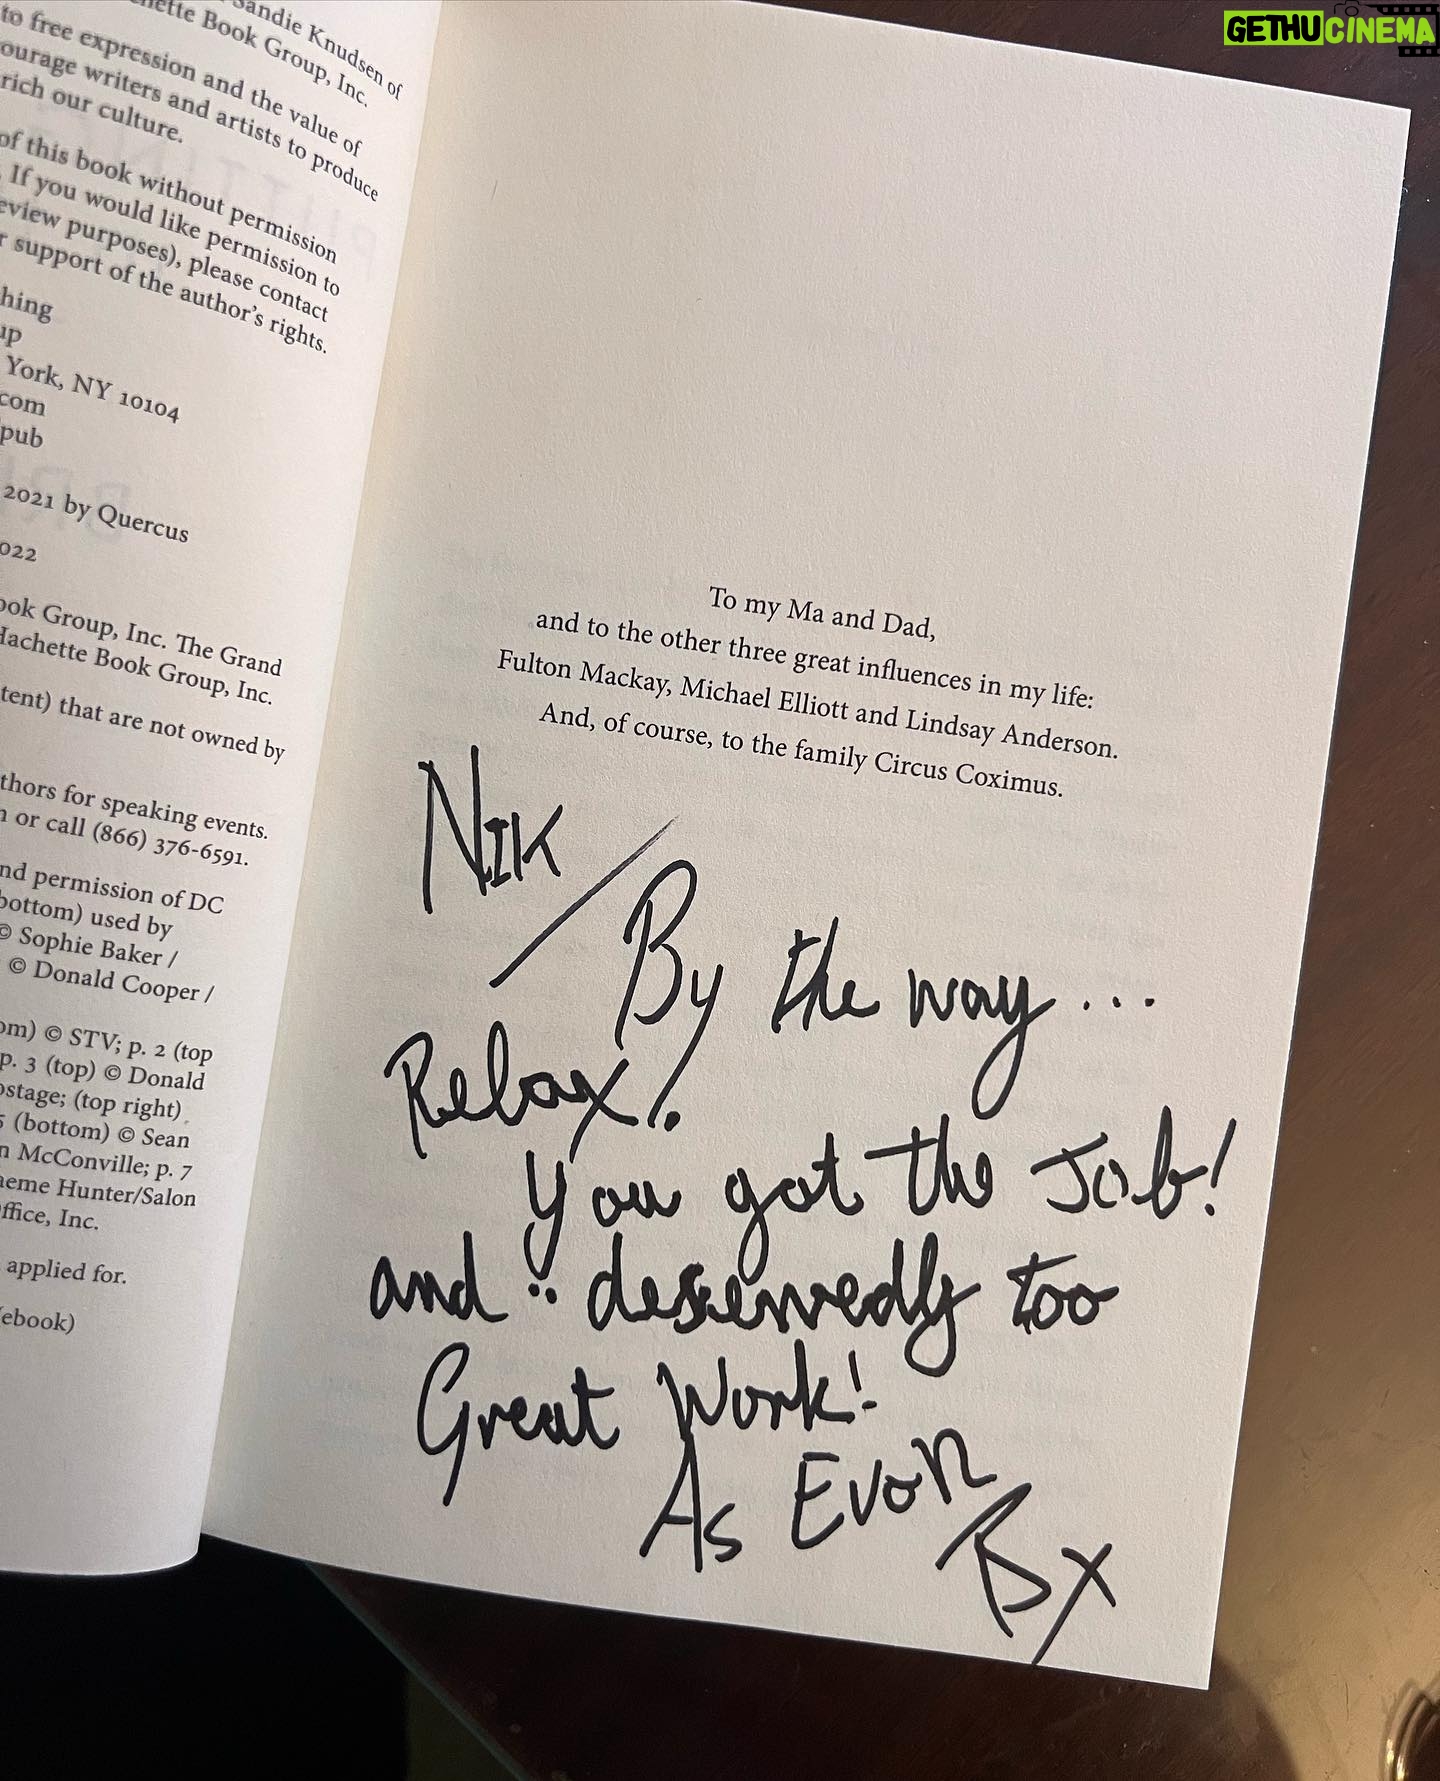 GETHUCINEMA
Sandie Knudsen of
Book Group, Inc.
to free expression and the value of
ourage writers and artists to produce
rich our culture.
of this book without permission
. If you would like permission to
eview purposes), please contact
r support of the author's rights.
hing
up
York, NY 10104
com
pub
2021 by Quercus
022
ook Group, Inc. The Grand
Hachette Book Group, Inc.
tent) that are not owned by
thors for speaking events.
n or call (866) 376-6591.
nd permission of DC
bottom) used by
© Sophie Baker /
© Donald Cooper /
om) © STV; p. 2 (top
p. 3 (top) © Donald
ostage; (top right)
5 (bottom) © Sean
n McConville; p. 7
aeme Hunter/Salon
ffice, Inc.
applied for.
(ebook)
To my Ma and Dad,
and to the other three great influences in my life:
Fulton Mackay, Michael Elliott and Lindsay Anderson.
And, of course, to the family Circus Coximus.
NIK
By the way ...
Relax!
You got the Job!
and .. deservedly too
Great Work!
As Ever
Bx